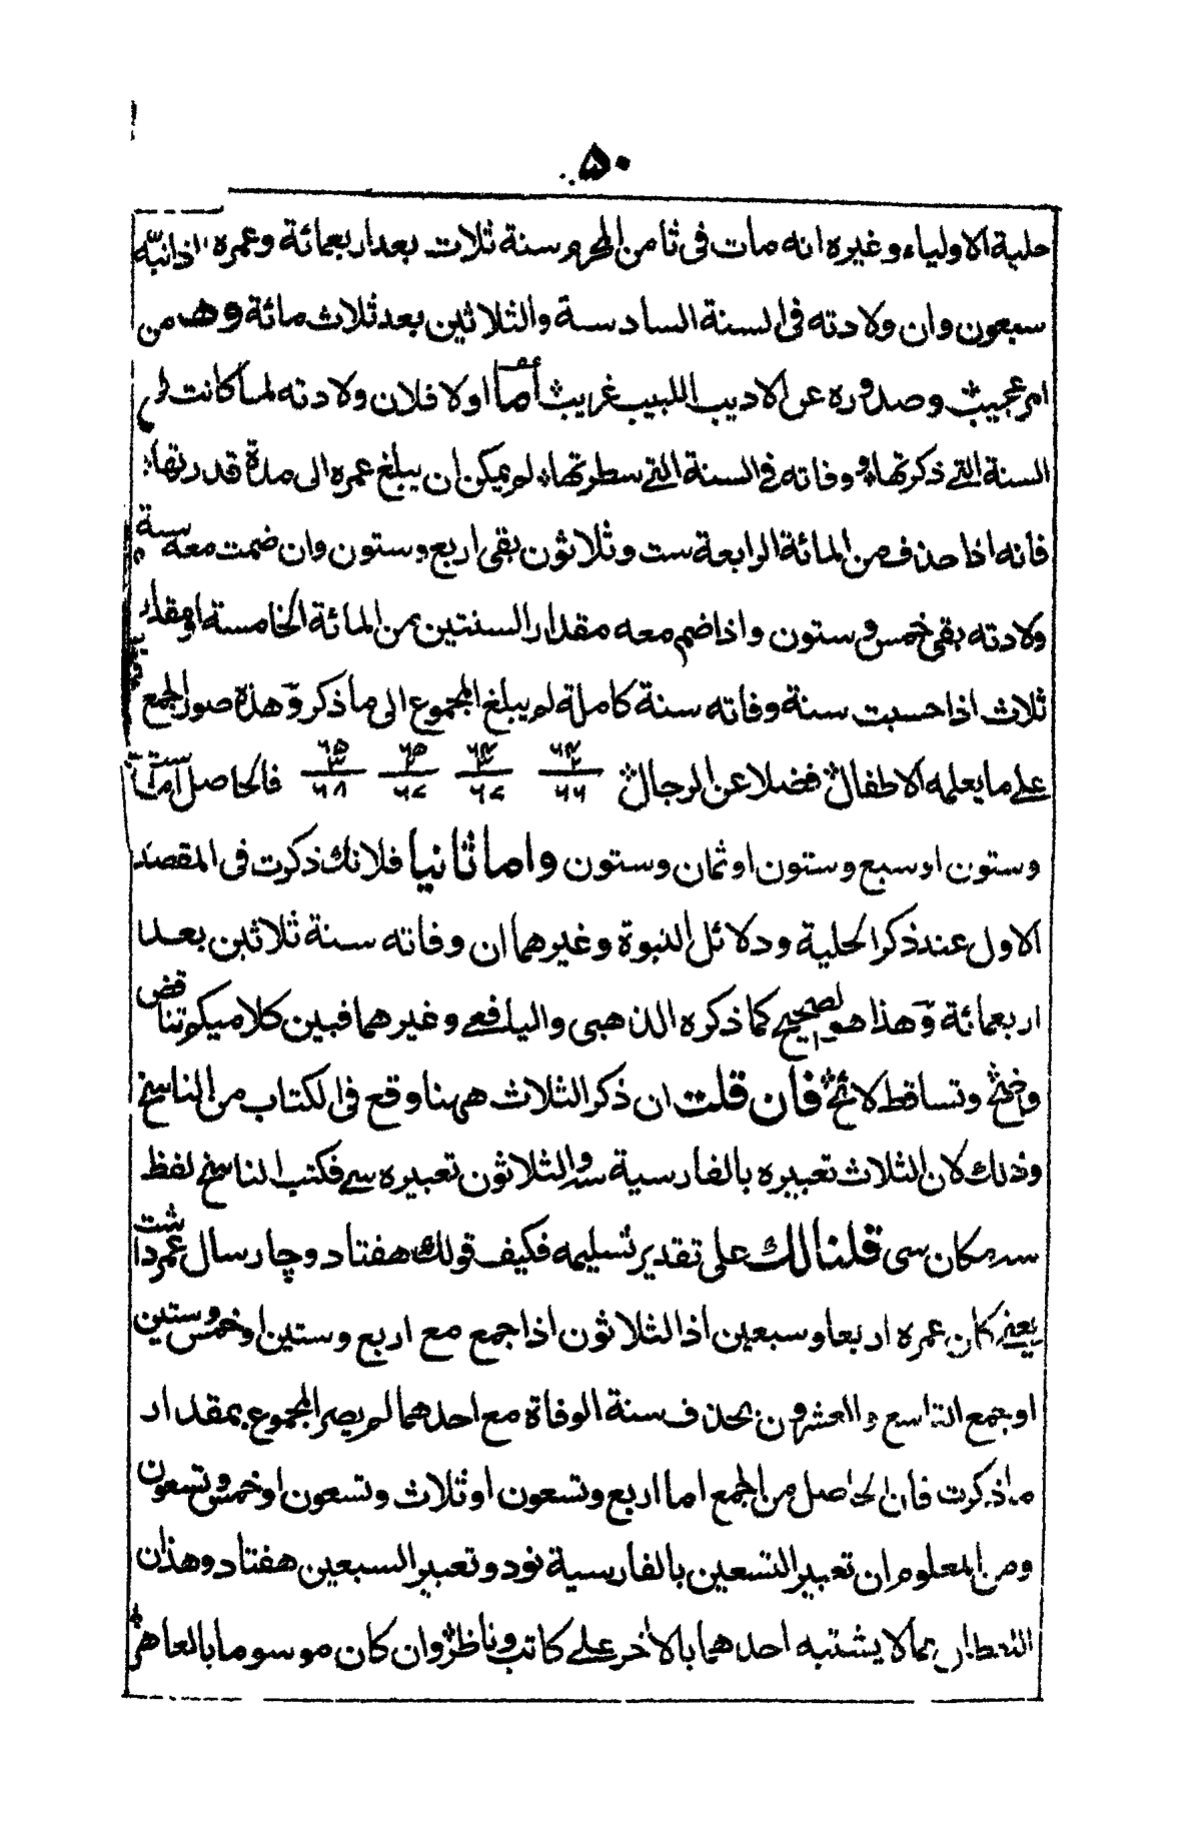 ٥٠
حلية الاولياء وغيره انه مات فى ثامن المحرم سنة ثلاث بعد اربعمائة وعمره
سبعون وان ولادته فى السنة السادسة والثلاثين بعد ثلاث مائة وهو من
امر عجيب وصدوره عن الاديب اللبيب غريب اما اولا فلان ولادته لما كانت فى
السنة التى ذكرتها ووفاته فى السنة التى سطرتها لم يمكن ان يبلغ عمره الى مدة قدرتها
فانه اذا حذف من المائة الرابعة ست وثلاثون بقى اربع وستون وان ضمت معه سنة
ولادته بقى خمس وستون واذا ضم معه مقدار السنتين من المائة الخامسة او مقدار
ثلاث اذا حسبت سنة وفاته سنة كاملة لم يبلغ المجموع الى ما ذكر وهذه صور الجمع
على ما يعلمه الاطفال فضلا عن الرجال ٦٤ ٢ ٦٦ ٦٤ ٣ ٦٧ ٦٥ ٢ ٦٧ ٦٥ ٣ ٦٨ فالحاصل اما ست
وستون او سبع وستون او ثمان وستون واما ثانيا فلانك ذكرت فى المقصد
الاول عند ذكر الحلية ودلائل النبوة وغيرهما ان وفاته سنة ثلاثين بعد
اربعمائة وهذا هو الصحيح كما ذكره الذهبى واليافعى وغيرهما فبين كلاميكم تناقض
واضح وتساقط لائح فان قلت ان ذكر الثلاث ههنا وقع فى الكتاب من الناسخ
وذلك لان الثلاث تعبيره بالفارسية سه والثلاثون تعبيره سى فكتب الناسخ لفظ
سه مكان سى قلنا لك على تقدير تسليمه فكيف قولك هفتاد وچار سال عمر داشت
يعنى كان عمره اربعا وسبعين اذ الثلاثون اذا جمع مع اربع وستين او خمس وستين
او جمع التاسع والعشرون بحذف سنة الوفاة مع احدهما لم يصر المجموع بمقدار
ما ذكرت فان الحاصل من الجمع اما اربع وتسعون او ثلاث وتسعون او خمس وتسعون
ومن المعلوم ان تعبير التسعين بالفارسية نود وتعبير السبعين هفتاد وهذان
اللفظان مما لا يشتبه احدهما بالاخر على كاتب وناظر وان كان موسوما بالعاهر